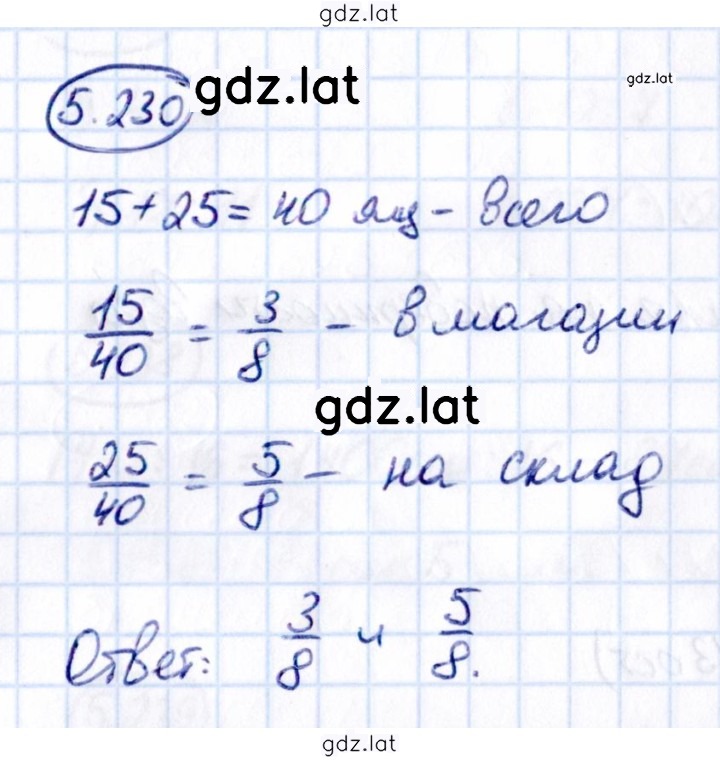 gdz.lat
5.230 gdz.lat gdz.lat
15 + 25 = 40 ящ - всего
15/40 = 3/8 - в магазин
gdz.lat
25/40 = 5/8 - на склад
Ответ: 3/8 и 5/8.
gdz.lat